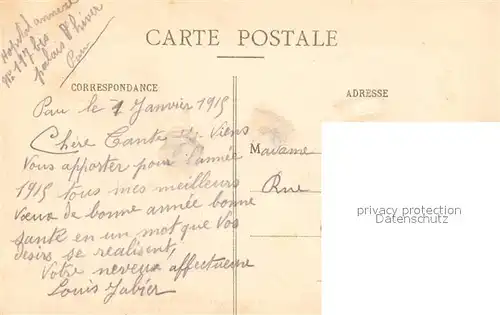 Hopital annexe
No 197 bis
palais d'hiver
Pau
CARTE POSTALE
CORRESPONDANCE
ADRESSE
Pau le 1 Janvier 1915
Chère Tante je Viens
Vous apporter pour l'année
1915 tous mes meilleurs
Vœux de bonne année bonne
santé en un mot que Vos
desirs se realisent,
Votre neveux affectueux
Louis
Madame
Rue
privacy protection
Datenschutz